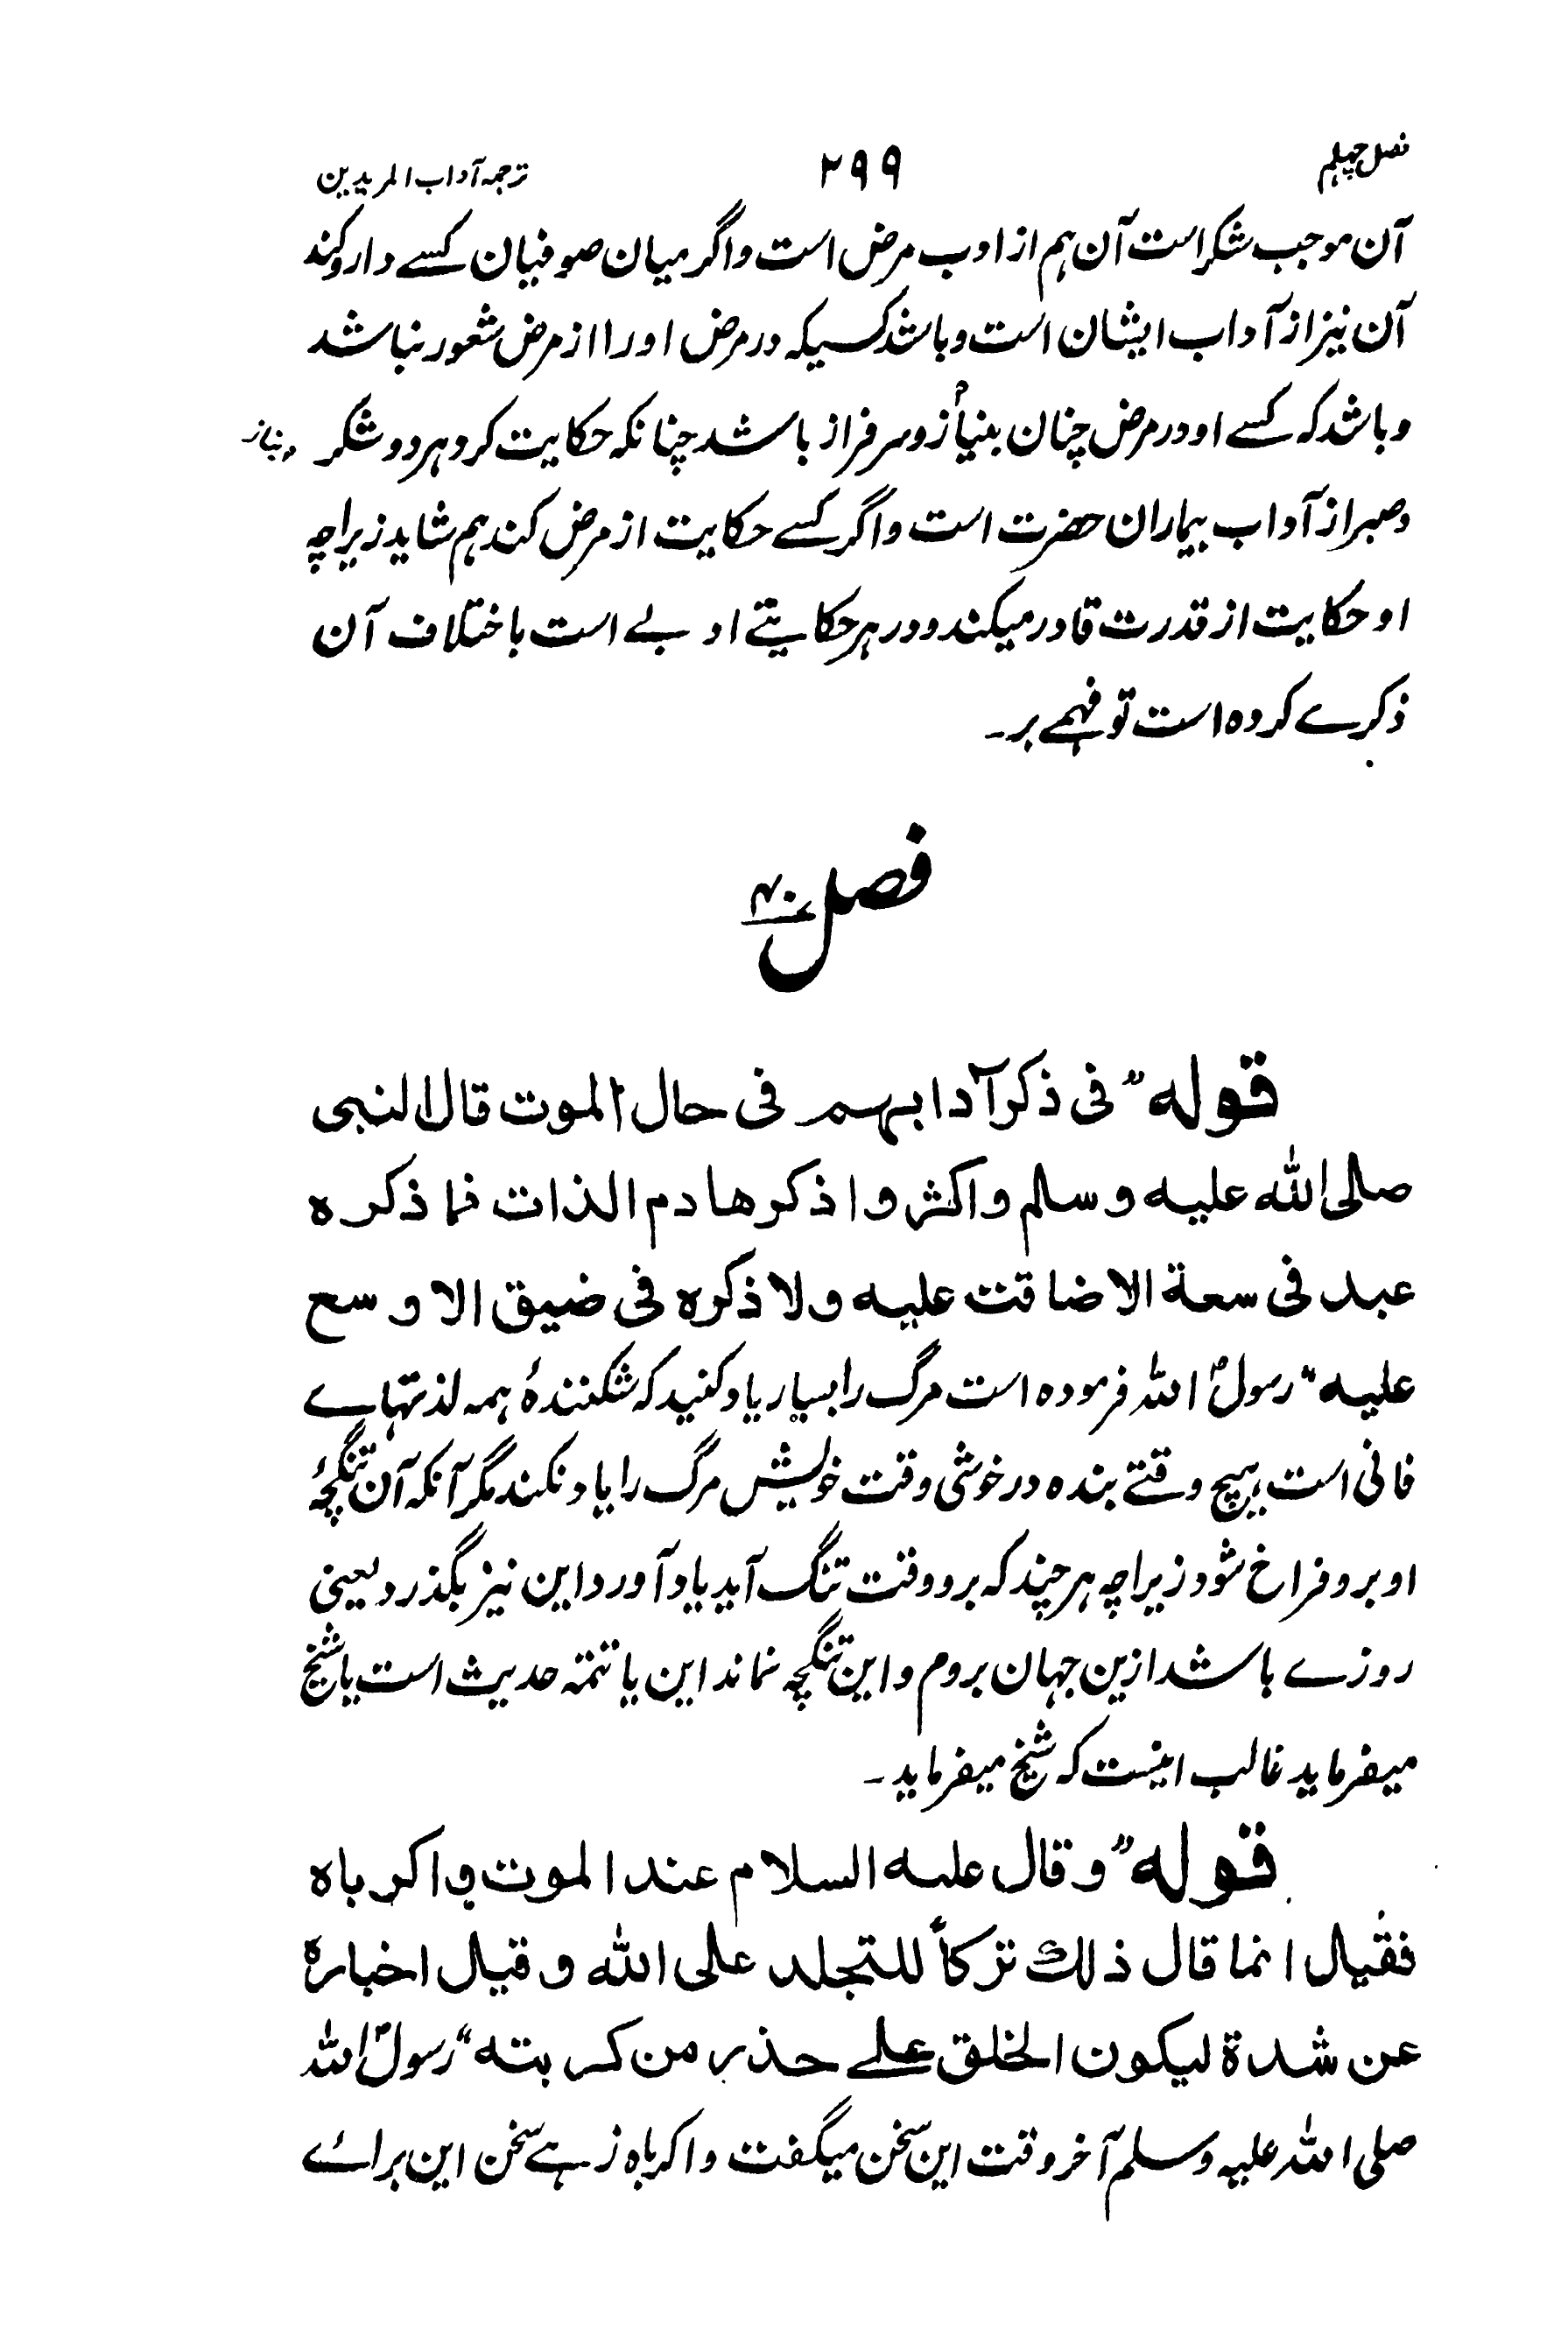 فصل چہلم ۲۹۹ ترجمہ آداب المریدین
آن موجب شکر است آن ہم از ادب مرض است و اگر میان صوفیان کسے دارو کند
آن نیز از آداب ایشان است و باشد کسیکہ در مرض او را از مرض شعور نباشد
و باشد کہ کسے او در مرض چنان بنیاز و سرفراز باشد چنانکہ حکایت کرد ہر دو شکر
و صبر از آداب بیماران حضرت است و اگر کسے حکایت از مرض کند ہم شاید زیراچہ
او حکایت از قدرت قادر میکند و در ہر حکایتے ادبے است باختلاف آن
ذکرے کردہ است تو فہمے بر۔
فصل ۴۰
قوله "فی ذکر آدابہم فی حال الموت قال النبی
صلی اللہ علیه وسلم واکثروا ذکر هادم الذات فما ذکره
عبد فی سعة الا ضاقت علیه ولا ذکره فی ضیق الا وسع
علیه" رسولؐ اللہ فرمودہ است مرگ را بسیار یاد کنید کہ شکنندۂ ہمہ لذتہاے
فانی است ہیچ وقتے بندہ در خوشی وقت خویش مرگ را یاد نکند مگر آنکہ آن تنگچۂ
او برو فراخ شود زیراچہ ہر چند کہ برو وقت تنگ آید یاد آورد این نیز بگذرد یعنی
روزے باشد ازین جہان بروم و این تنگچہ نماند این یا تتمۂ حدیث است یا شیخ
میفرماید غالب اینست کہ شیخ میفرماید۔
قوله "وقال علیه السلام عند الموت واکرباه
فقیل انما قال ذلك ترکاً للتجلد علی اللہ وقیل اخبارة
عن شدة لیکون الخلق علے حذر من کربته" رسولؐ اللہ
صلی اللہ علیہ وسلم آخر وقت این سخن میگفت واکرباہ زہے سخن این براے